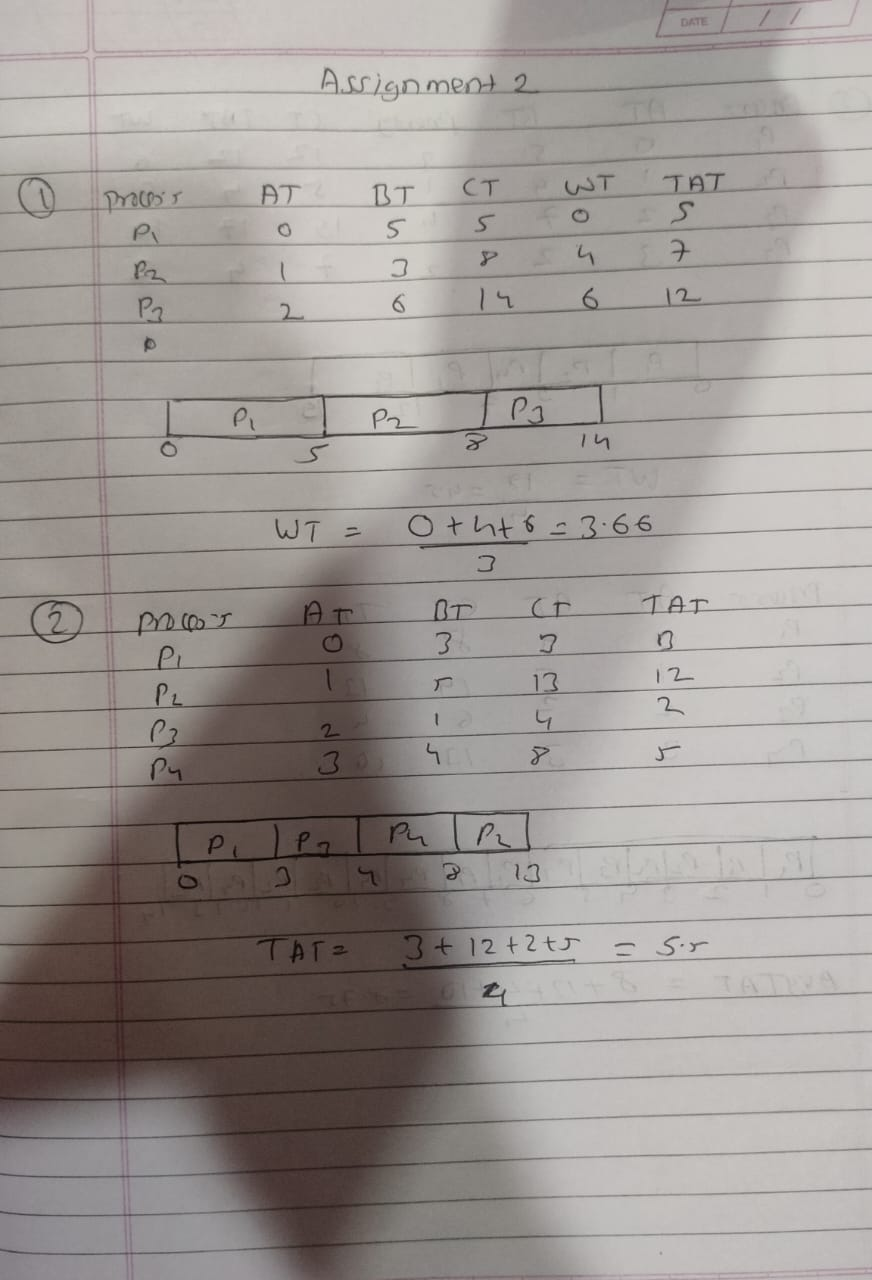 DATE / /
Assignment 2
① process AT BT CT WT TAT
P1 0 5 5 0 5
P2 1 3 8 4 7
P3 2 6 14 6 12
P1 P2 P3
0 5 8 14
WT = 0+4+6 = 3.66
3
② process AT BT CT TAT
P1 0 3 3 3
P2 1 5 13 12
P3 2 1 4 2
P4 3 4 8 5
P1 P3 P4 P2
0 3 4 8 13
TAT = 3+12+2+5 = 5.5
4